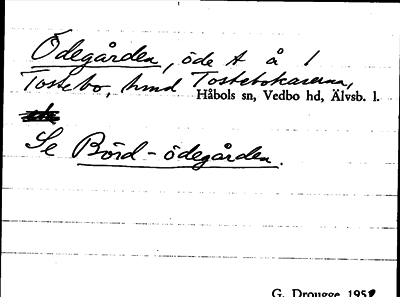 Ödegården, öde t å /
Tostebo, hmd Tostebokasarna,
Håbols sn, Vedbo hd, Älvsb. l.
Se Börd-ödegården.
G. Drougge 195